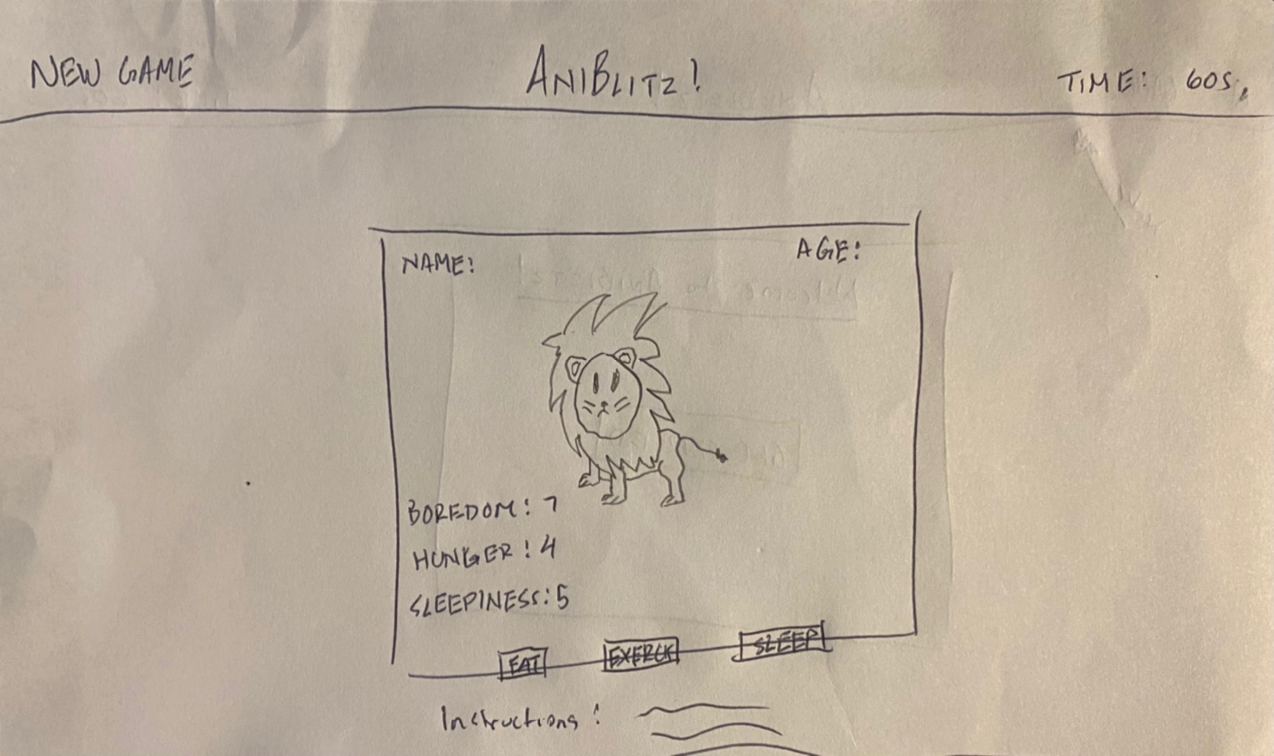 NEW GAME
ANIBLITZ!
TIME: 60S.
NAME:
AGE:
BOREDOM: 7
HUNGER: 4
SLEEPINESS: 5
EAT
SLEEP
Instructions: